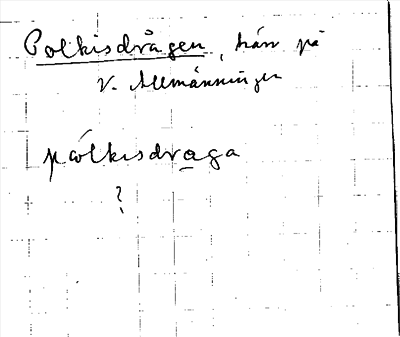 Polkisdrågen, trän på
V. Allmänningen
pólkisdraga
?